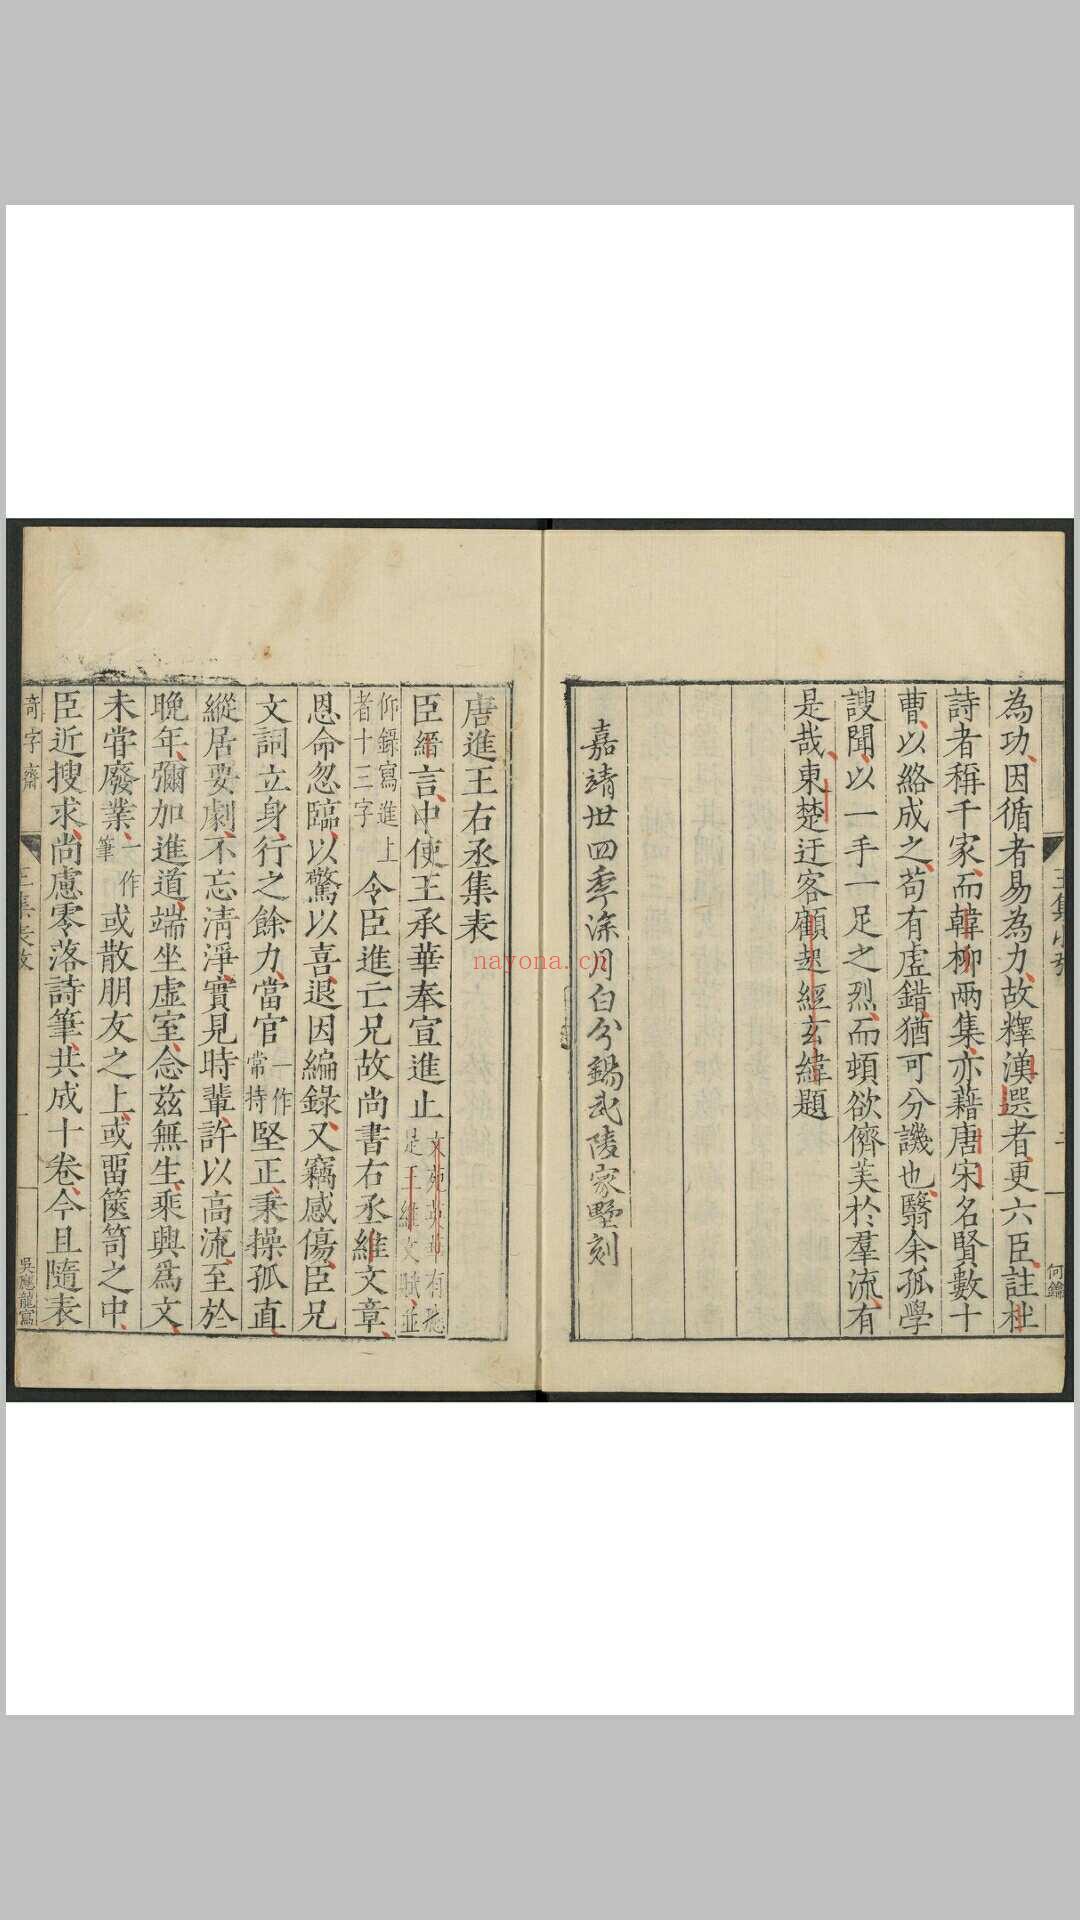 為功因循者易為力故釋漢選者更六臣註杜
詩者稱千家而韓柳兩集亦藉唐宋名賢數十
曹以絡成之苟有虛錯猶可分譏也翳余孤學
謏聞以一手一足之烈而頓欲儕美於羣流有
是哉東楚迂客顧起經玄緯題
嘉靖卅四季涂月白分錫武陵家墅刻
何鑰
唐進王右丞集表
臣縉言中使王承華奉宣進止文苑英華有恐是王維文賦並
仰錄寫進上者十三字令臣進亡兄故尚書右丞維文章
恩命忽臨以驚以喜退因編錄又竊感傷臣兄
文詞立身行之餘力當官一作常持堅正秉操孤直
縱居要劇不忘清淨實見時輩許以高流至於
晚年彌加進道端坐虛室念茲無生乘興爲文
未甞廢業一作筆或散朋友之上或畱篋笥之中
臣近搜求尚慮零落詩筆共成十卷今且隨表
奇字齋
吳應龍寫
nayona.cn